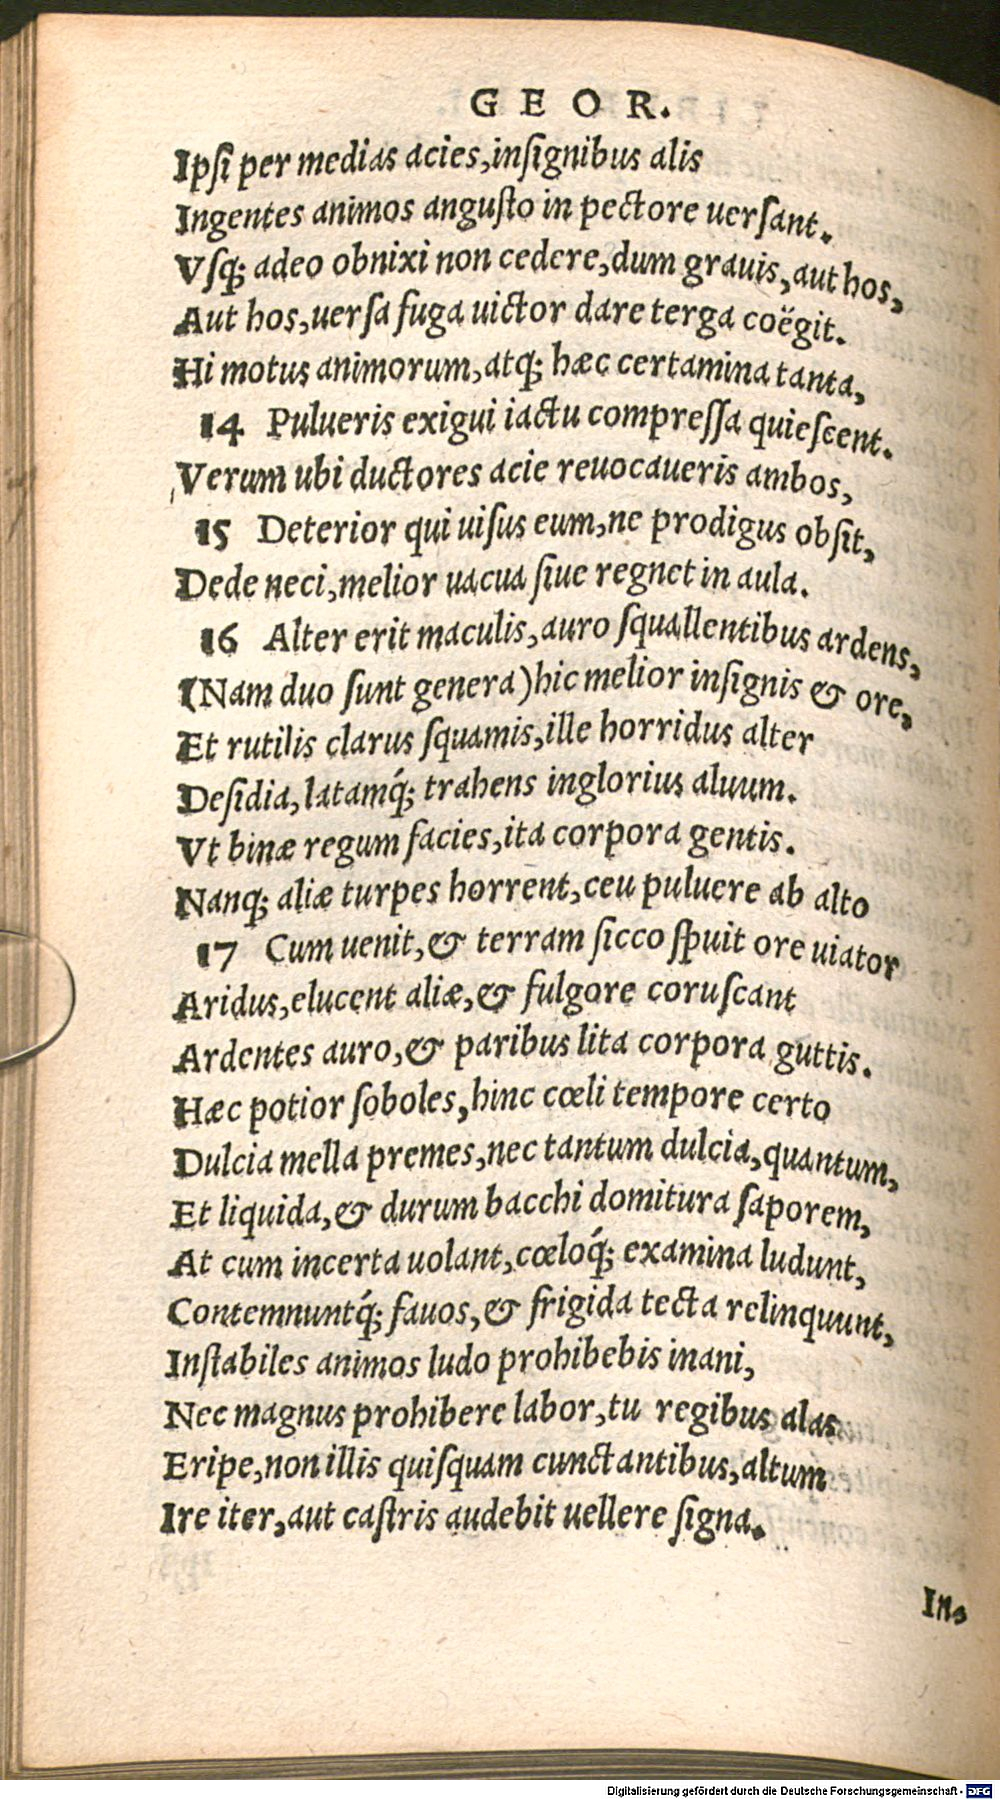 GEOR.
Ipſi per medias acies, inſignibus alis
Ingentes animos anguſto in pectore uerſant.
Vſq; adeo obnixi non cedere, dum grauis, aut hos,
Aut hos, uerſa fuga uictor dare terga coëgit.
Hi motus animorum, atq; hæc certamina tanta,
14 Pulueris exigui iactu compreſſa quieſcent.
Verum ubi ductores acie reuocaueris ambos,
15 Deterior qui uiſus eum, ne prodigus obſit,
Dede neci, melior uacua ſiue regnet in aula.
16 Alter erit maculis, auro ſquallentibus ardens,
(Nam duo ſunt genera) hic melior inſignis & ore,
Et rutilis clarus ſquamis, ille horridus alter
Deſidia, latamq́; trahens inglorius aluum.
Vt binæ regum facies, ita corpora gentis.
Nanq; aliæ turpes horrent, ceu puluere ab alto
17 Cum uenit, & terram ſicco ſpuit ore uiator
Aridus, elucent aliæ, & fulgore coruſcant
Ardentes auro, & paribus lita corpora guttis.
Hæc potior ſoboles, hinc cœli tempore certo
Dulcia mella premes, nec tantum dulcia, quantum,
Et liquida, & durum bacchi domitura ſaporem,
At cum incerta uolant, cœloq́; examina ludunt,
Contemnuntq́; fauos, & frigida tecta relinquunt,
Inſtabiles animos ludo prohibebis inani,
Nec magnus prohibere labor, tu regibus alas
Eripe, non illis quiſquam cunctantibus, altum
Ire iter, aut caſtris audebit uellere ſigna.
In⸗
Digitalisierung gefördert durch die Deutsche Forschungsgemeinschaft - DFG